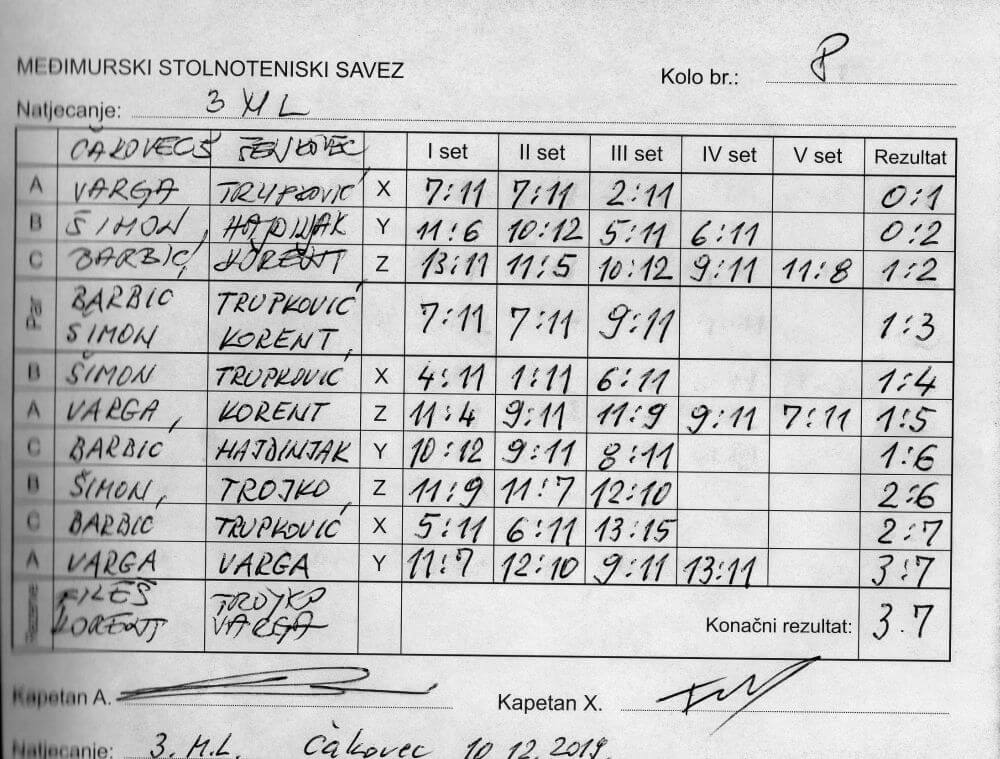 MEĐIMURSKI STOLNOTENISKI SAVEZ
Kolo br.: 8
Natjecanje: 3 ML
ČAKOVEC Š ŠENKOVEC I set II set III set IV set V set Rezultat
A VARGA TRUPKOVIĆ X 7:11 7:11 2:11 0:1
B ŠIMON, HAJDINJAK Y 11:6 10:12 5:11 6:11 0:2
C BARBIĆ, KORENT Z 13:11 11:5 10:12 9:11 11:8 1:2
Par BARBIĆ TRUPKOVIĆ 7:11 7:11 9:11 1:3
ŠIMON KORENT,
B ŠIMON TRUPKOVIĆ X 4:11 1:11 6:11 1:4
A VARGA, KORENT Z 11:4 9:11 11:9 9:11 7:11 1:5
C BARBIĆ HAJDINJAK Y 10:12 9:11 8:11 1:6
B ŠIMON, TROJKO, Z 11:9 11:7 12:10 2:6
C BARBIĆ TRUPKOVIĆ X 5:11 6:11 13:15 2:7
A VARGA VARGA Y 11:7 12:10 9:11 13:11 3:7
Rezerve FILEŠ TROJKO
KORENT VARGA
Konačni rezultat: 3.7
Kapetan A.
Kapetan X.
Natjecanje: 3. M.L. Čakovec 10.12.2019.